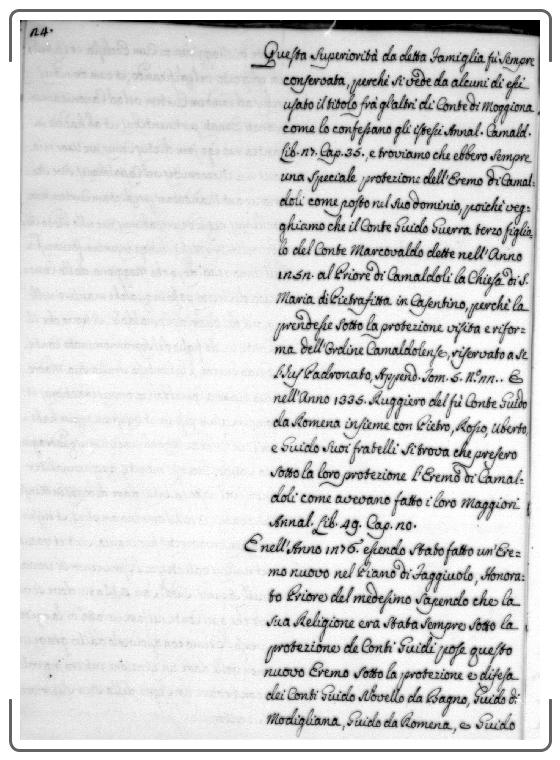 24.
Questa Superiorità da detta Famiglia fù sempre
conservata, perchè si vede da alcuni di essi
usato il titolo frà gl'altri di Conte di Moggiona
come lo confessano gl'istessi Annal. Camald.
Lib. 27. Cap. 35., e troviamo che ebbero sempre
una speciale protezione dell'Eremo di Camal=
doli come posto nel suo dominio, poichè veg=
ghiamo che il Conte Guido Guerra terzo figlio
lo del Conte Marcovaldo dette nell'Anno
al Priore di Camaldoli la Chiesa di S.
Maria di Pietrafitta in Casentino, perchè la
prendesse sotto la protezione visita e rifor=
ma dell'Ordine Camaldolense, riservato a se
l'Jus Padronato, Append. Tom. 5. N.° 22.. E
nell'Anno 1335. Ruggiero del fù Conte Guido
da Romena insieme con Pietro, Rosso, Uberto,
e Guido suoi fratelli si trova che presero
sotto la loro protezione l'Eremo di Camal=
doli come avevano fatto i loro Maggiori
Annal. Lib. 49. Cap. 20.
E nell'Anno essendo stato fatto un'Ere=
mo nuovo nel Piano di Faggiuolo, Honora=
to Priore del medesimo sapendo che la
sua Religione era stata sempre sotto la
protezione de Conti Guidi pose questo
nuovo Eremo sotto la protezione e difesa
dei Conti Guido Novello da Bagno, Guido di
Modigliana, Guido da Romena, e Guido